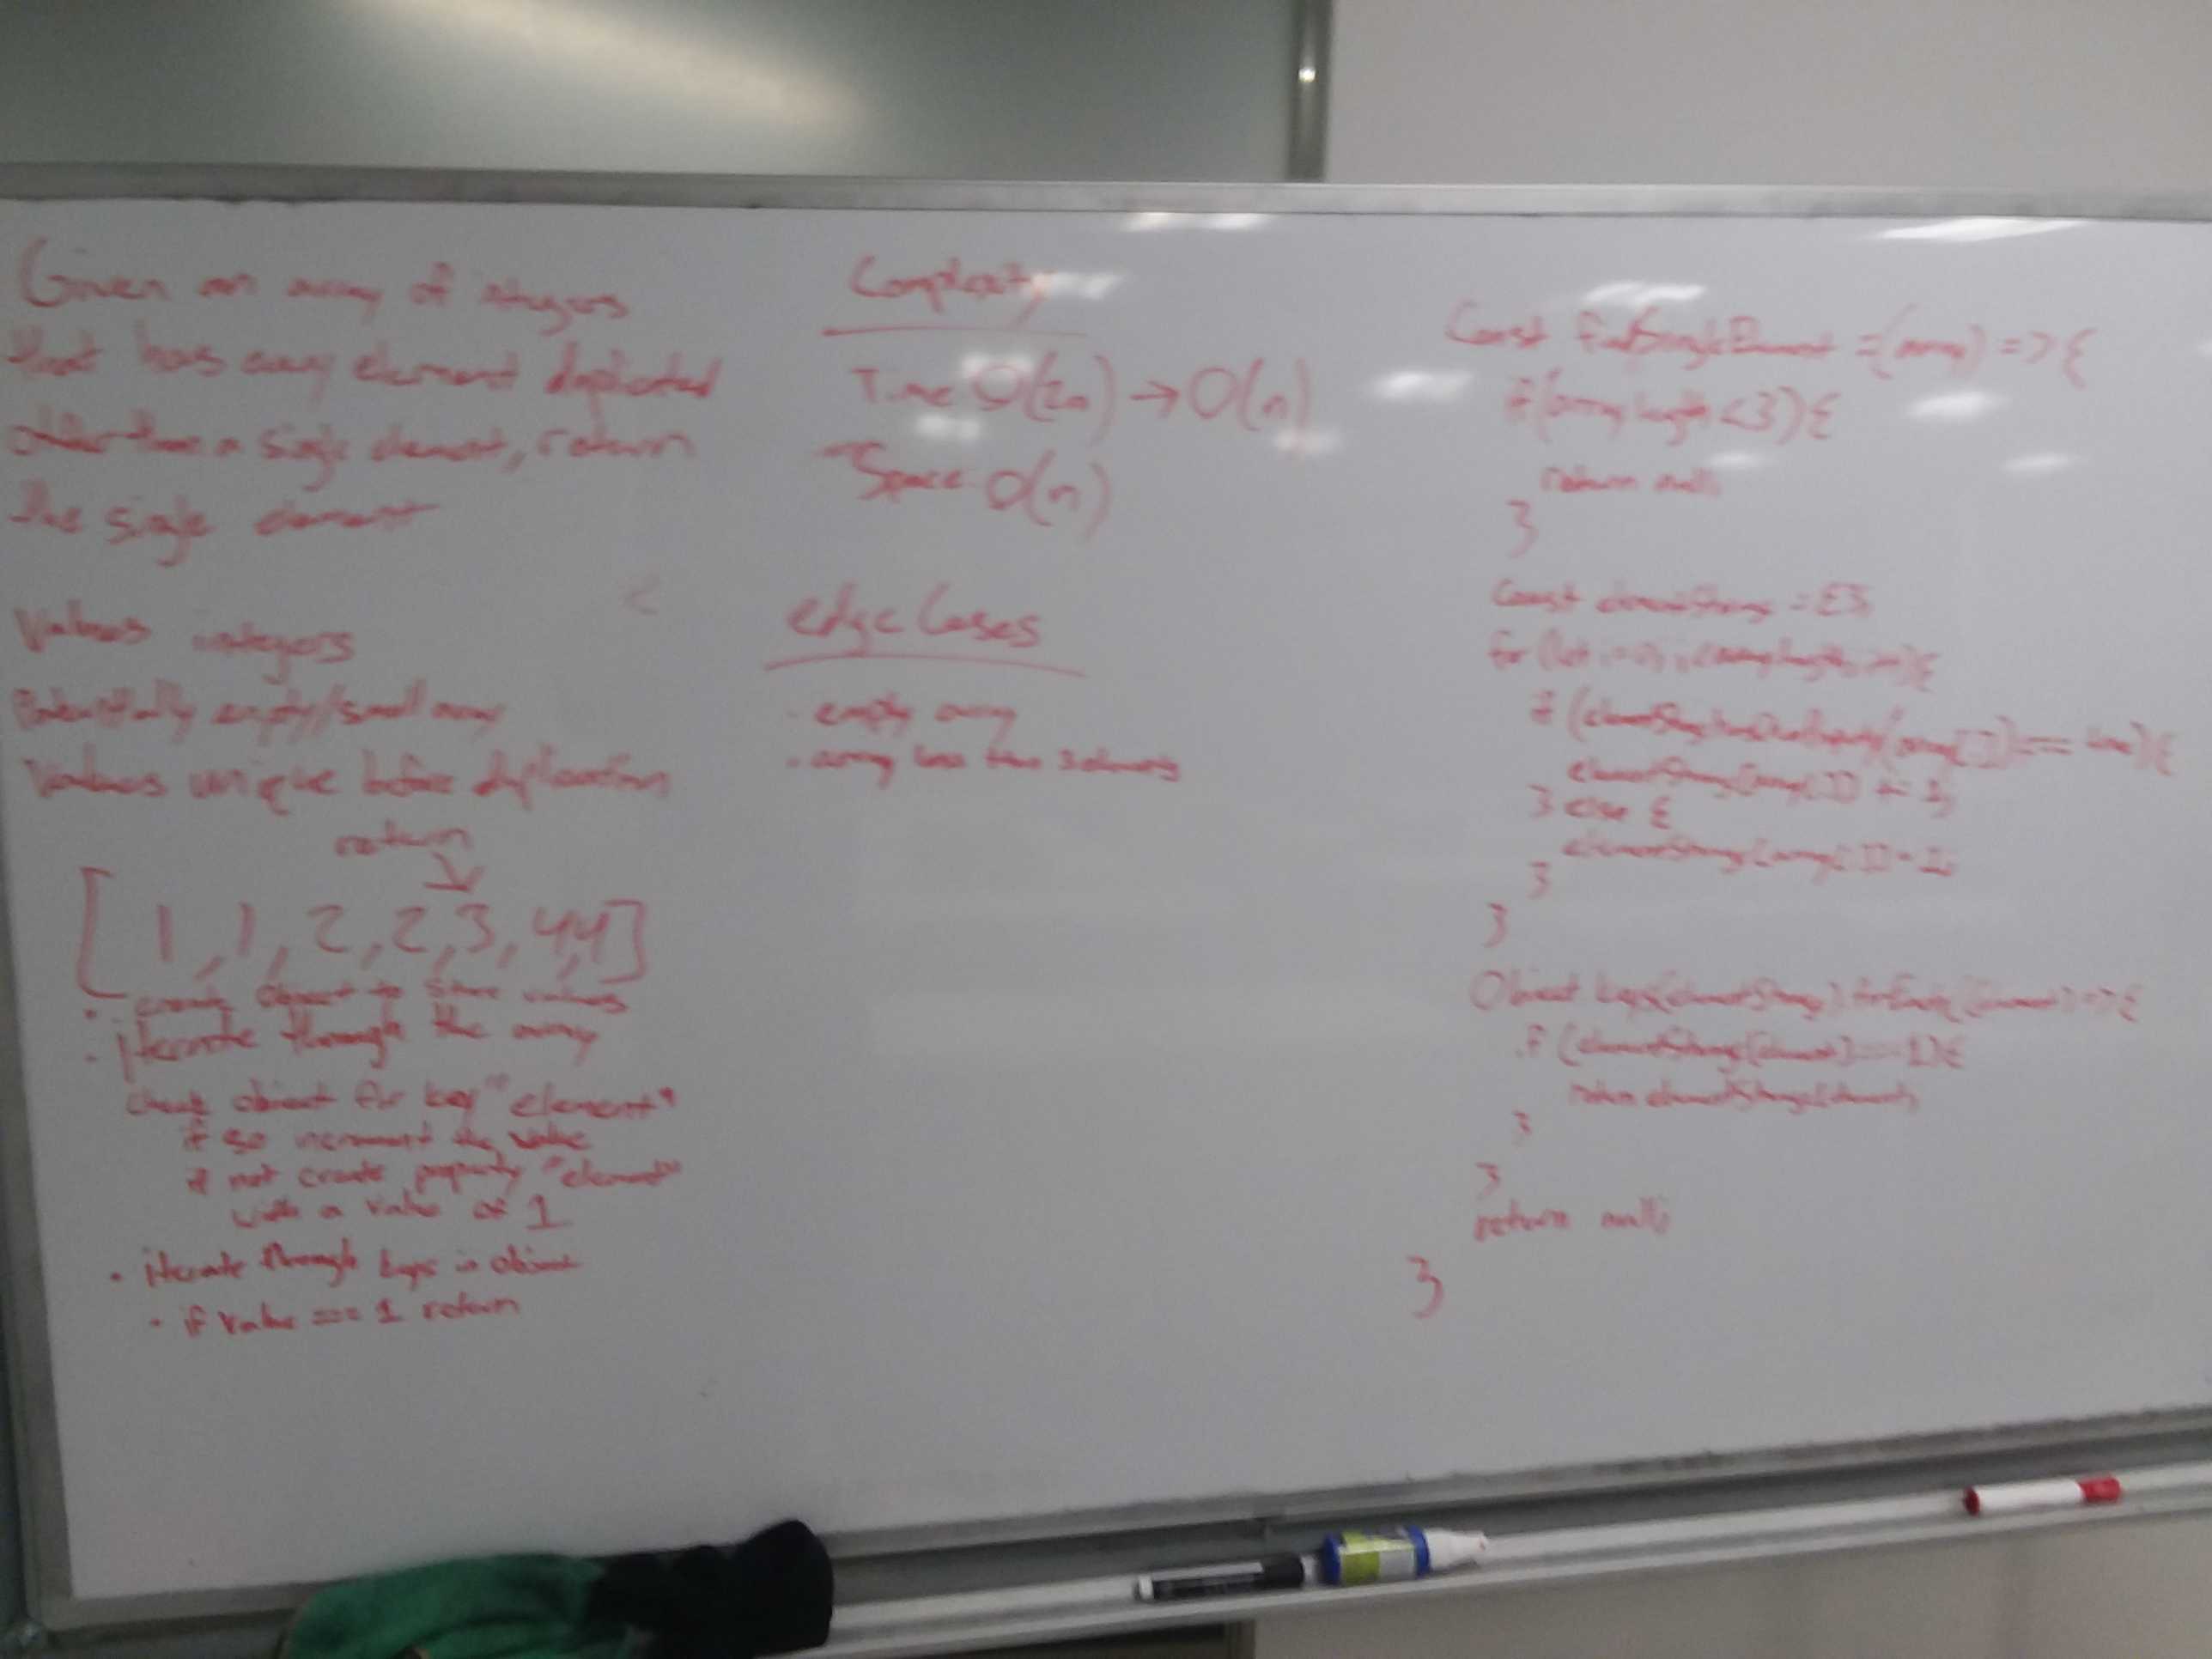 Given an array of integers
that has every element duplicated
other than a single element, return
the single element
Values integers
Potentially empty/small array
Values unique before duplication
return
[1, 1, 2, 2, 3, 4, 4]
· create object to store values
· iterate through the array
check object for key "element"
if so increment the value
if not create property "element"
with a value of 1
· iterate through keys in object
· if value === 1 return
Complexity
Time O(2n) → O(n)
Space O(n)
edge Cases
- empty array
- array less than 3 elements
Const findSingleElement = (array) => {
if (array.length < 3) {
return null;
}
Const = {};
for (let i = 0; i < array.length; i++) {
if ( array[i]) === true) {
[array[i]] += 1;
} else {
[array[i]] = 1;
}
}
Object.keys( ).forEach((element) => {
if ( [element] === 1) {
return
}
}
return null;
}